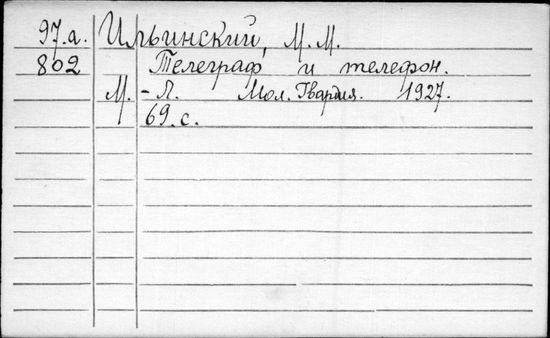 97.а. Ильинский, М. М.
802 Телеграф и телефон.
М. - Л. Мол. Гвардия. 1927.
69.с.